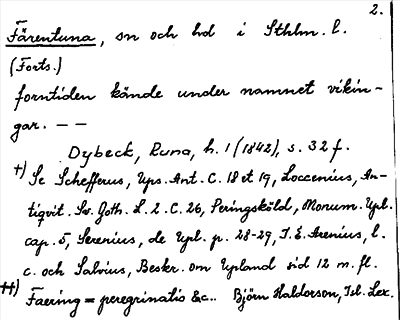 2.
Färentuna, sn och hd i Sthlm. l.
(Forts.)
forntiden kände under namnet vikin-
gar. — —
Dybeck, Runa, h. 1 (1842), s. 32 f.
+) Se Schefferus, Ups. Ant. C. 18 et 19, Loccenius, An-
tiqvit. Sv. Goth. L. 2. C. 26, Peringsköld, Monum. Upl.
cap. 5, Serenius, de Upl. p. 28-29, J. E. Arenius, l.
c. och Salvius, Beskr. om Upland sid 12 m. fl.
++) Faering = peregrinatio &c.. Björn Haldorson, Isl. Lex.